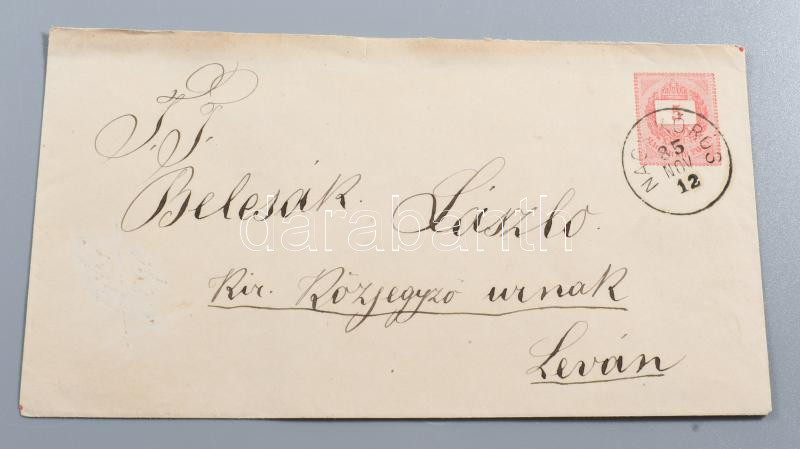 T. T.
Belesák László.
Kir. Közjegyző urnak
Leván
5
NAGY KŐRÖS
85
NOV
12
darabanth